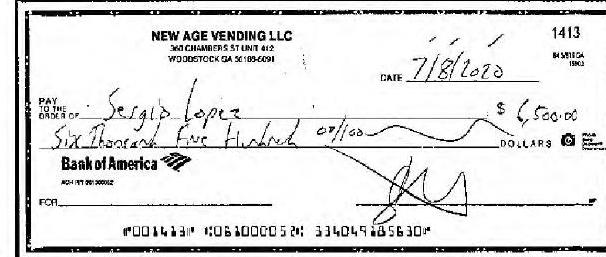 NEW AGE VENDING LLC
360 CHAMBERS ST UNIT 412
WOODSTOCK GA
1413
DATE 7/8/2020
PAY TO THE ORDER OF Sergio Lopez $ 6,500.00
Six Thousand Five Hundred 00/100 DOLLARS
Bank of America
ACH R/T 061000052
FOR
⑈001413⑈ ⑆061000052⑆ 334049185630⑈